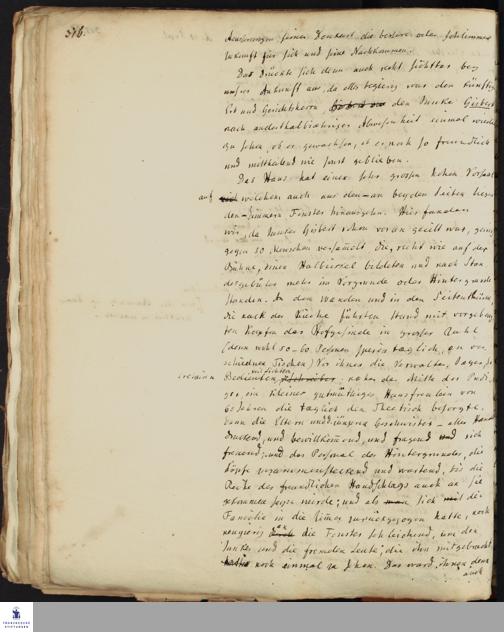 316.
seiner Denkart die bessere oder schlimmere
Zukunft für sich und seine Nachkommen.
Das drückte sich denn auch recht sichtbar bey
unsrer Ankunft aus, da alles begierig war den künftigen
und Gerichtsherrn, den Junker Gisbert
nach anderthalbjähriger Abwesenheit einmal wieder
zu sehen, ob er gewachsen, ob er noch so freundlich
und mittheilend wie sonst geblieben.
Das Haus hat einen sehr grossen hohen Vorsaal
auf welchem auch aus den an beyden Seiten
den Zimmern Fenster hinausgehn. Hier fanden
wir, da Junker Gisbert schon voran geeilt war,
gegen 50 Menschen versammelt die, recht wie auf der
Bühne, einen Halbzirkel bildeten und nach
mehr im Vorgrunde oder Hintergrunde
standen. An den Wänden und in den Seitenthüren
die nach der Küche führten stand mit
Köpfen das Hofgesinde in grosser Zahl
(denn wohl 50-60 Personen speisen täglich, an
schiednen Tischen) Vor ihnen die Verwalter,
Bedienten, näher der Mitte der
ein kleiner gutmüthiges Hausfräulein von
60 Jahren die täglich den Theetisch besorgte.
dann die Eltern und jüngere Geschwister – alles
und bewillkommend, und fragend und sich
freuend; und das Personal des Hintergrundes, die
Köpfe zusammensteckend und wartend, bis die
Reihe des freundlichen Handschlags auch an sie
gekommen seyn würde; und als sich die
Familie in die Zimmer zurückgezogen hatte, noch
neugierig an die Fenster schleichend, um den
Junker und die fremden Leute, die ihn mitgebracht
noch einmal zu sehen. Das ward ihnen denn
auch
FRANCKESCHE
STIFTUNGEN